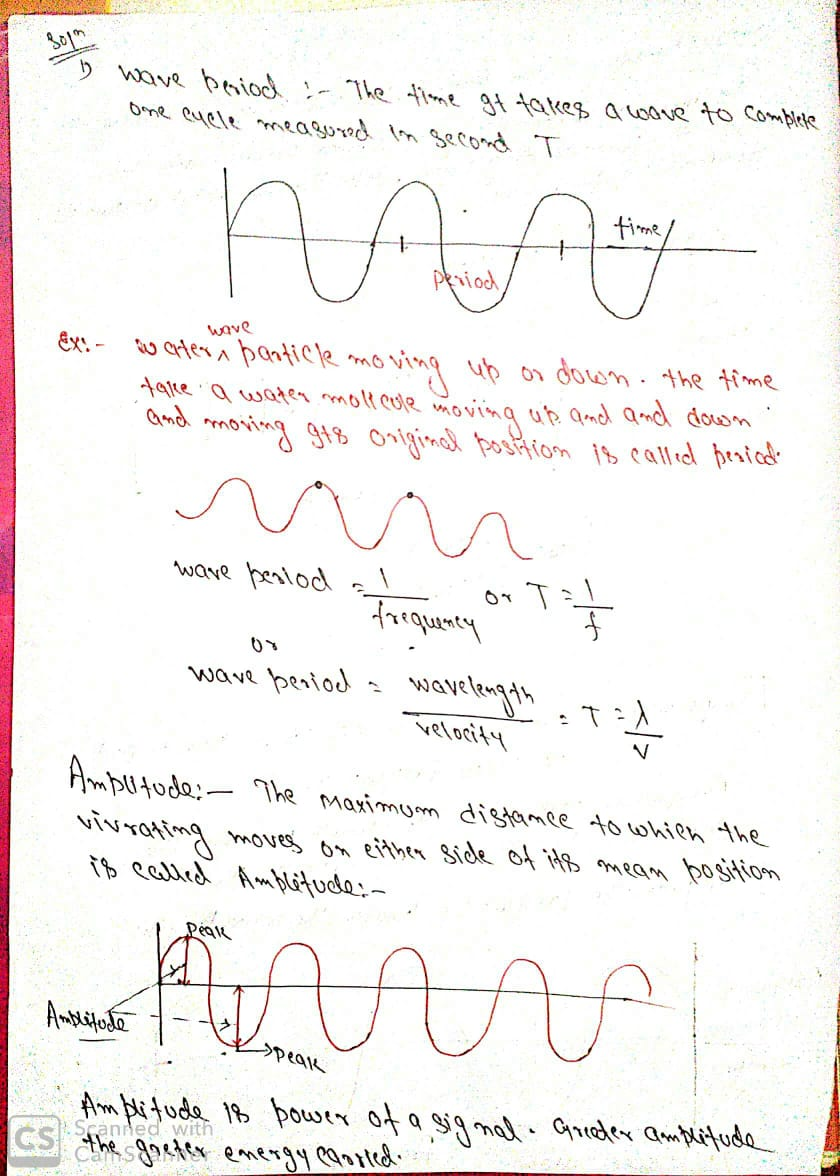 Solⁿ
1) wave period :- The time It takes a wave to complete
one cycle measured In second T
time
period
Ex: - water wave particle moving up or down. the time
take a water mollcule moving up and and down
and moving Its original position is called period.
wave period = 1/frequency or T = 1/f
or
wave period = wavelength/velocity = T = λ/v
Amplitude:- The Maximum distance to which the
vivrating moves on either side of its mean position
is called Amplitude:-
Peak
Amplitude
Peak
Amplitude is power of a signal. Greater amplitude
the greter energy carried.
CS Scanned with
CamScanner